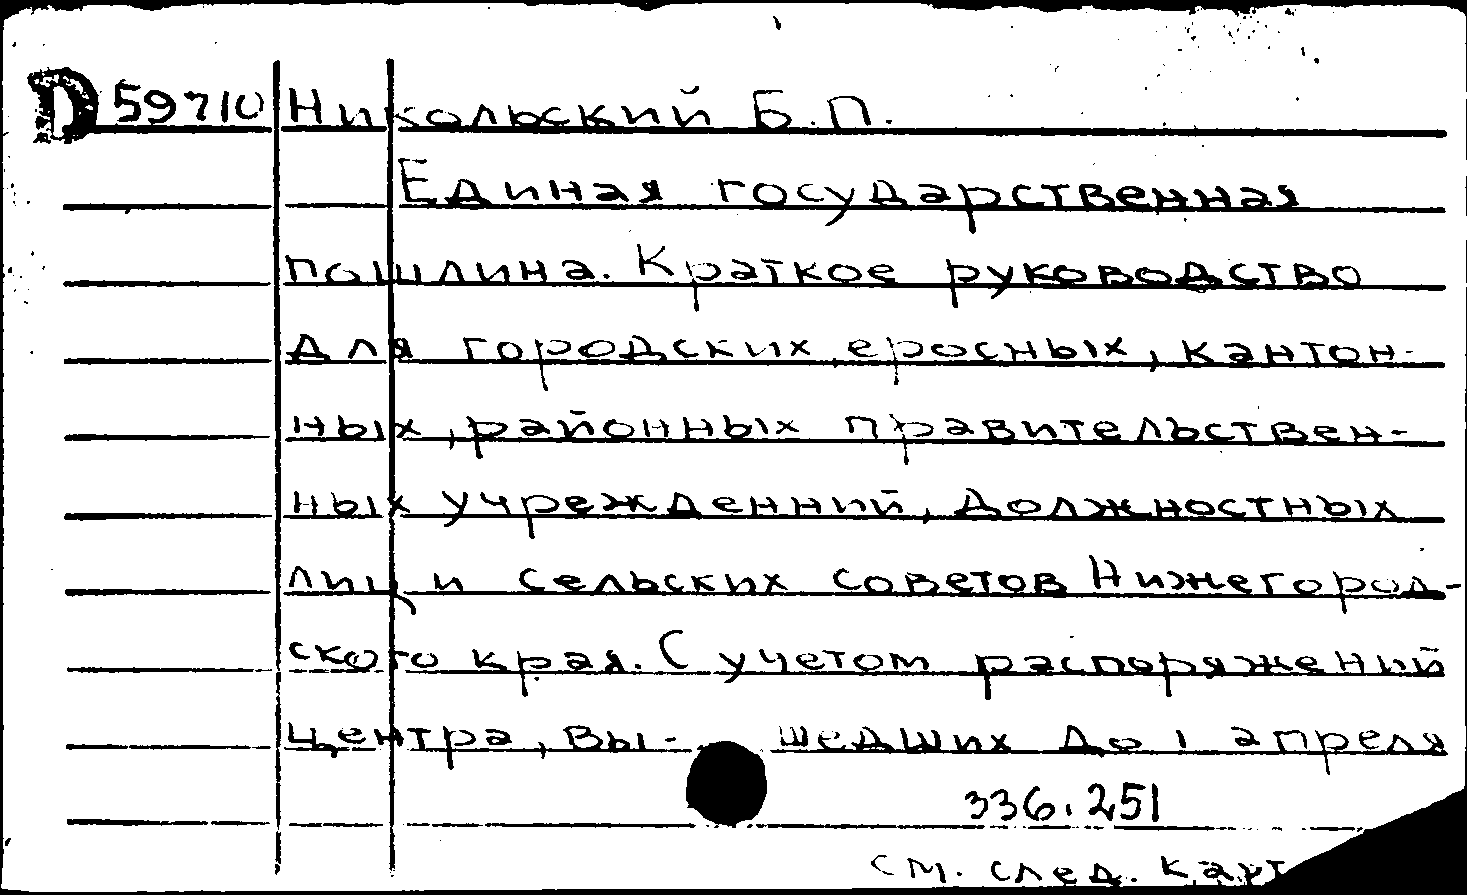 D 59710 Никольский Б.П.
Единая государственная
пошлина. Краткое руководство
для городских, еросных, кантон-
ных, районных правительствен-
ных учрежденний, должностных
лиц и сельских советов Нижегород-
ского края. С учетом распоряжений
центра, вы- шедших до 1 апреля
336.251
см. след. карт